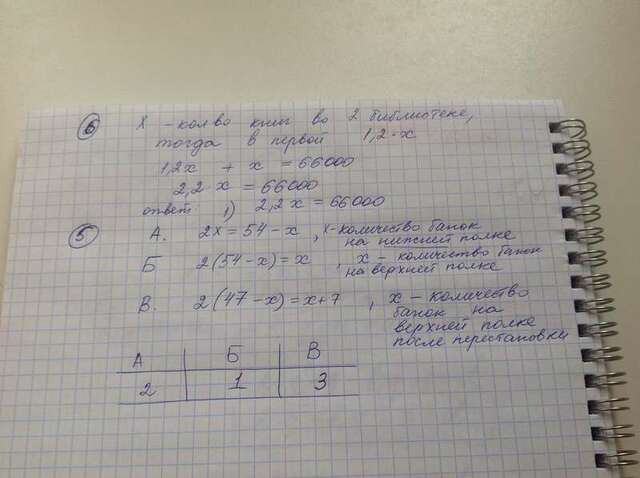 6 х – кол во книг во 2 библиотеке,
тогда в первой 1,2·х
1,2х + х = 66000
2,2 х = 66000
ответ 1) 2,2 х = 66000
5 А. 2х = 54 – х , х-количество банок
на нижней полке
Б 2(54 – х) = х , х – количество банок
на верхней полке
В. 2(47 – х) = х+7 , х – количество
банок на
верхней полке
после перестановки
А Б В
2 1 3